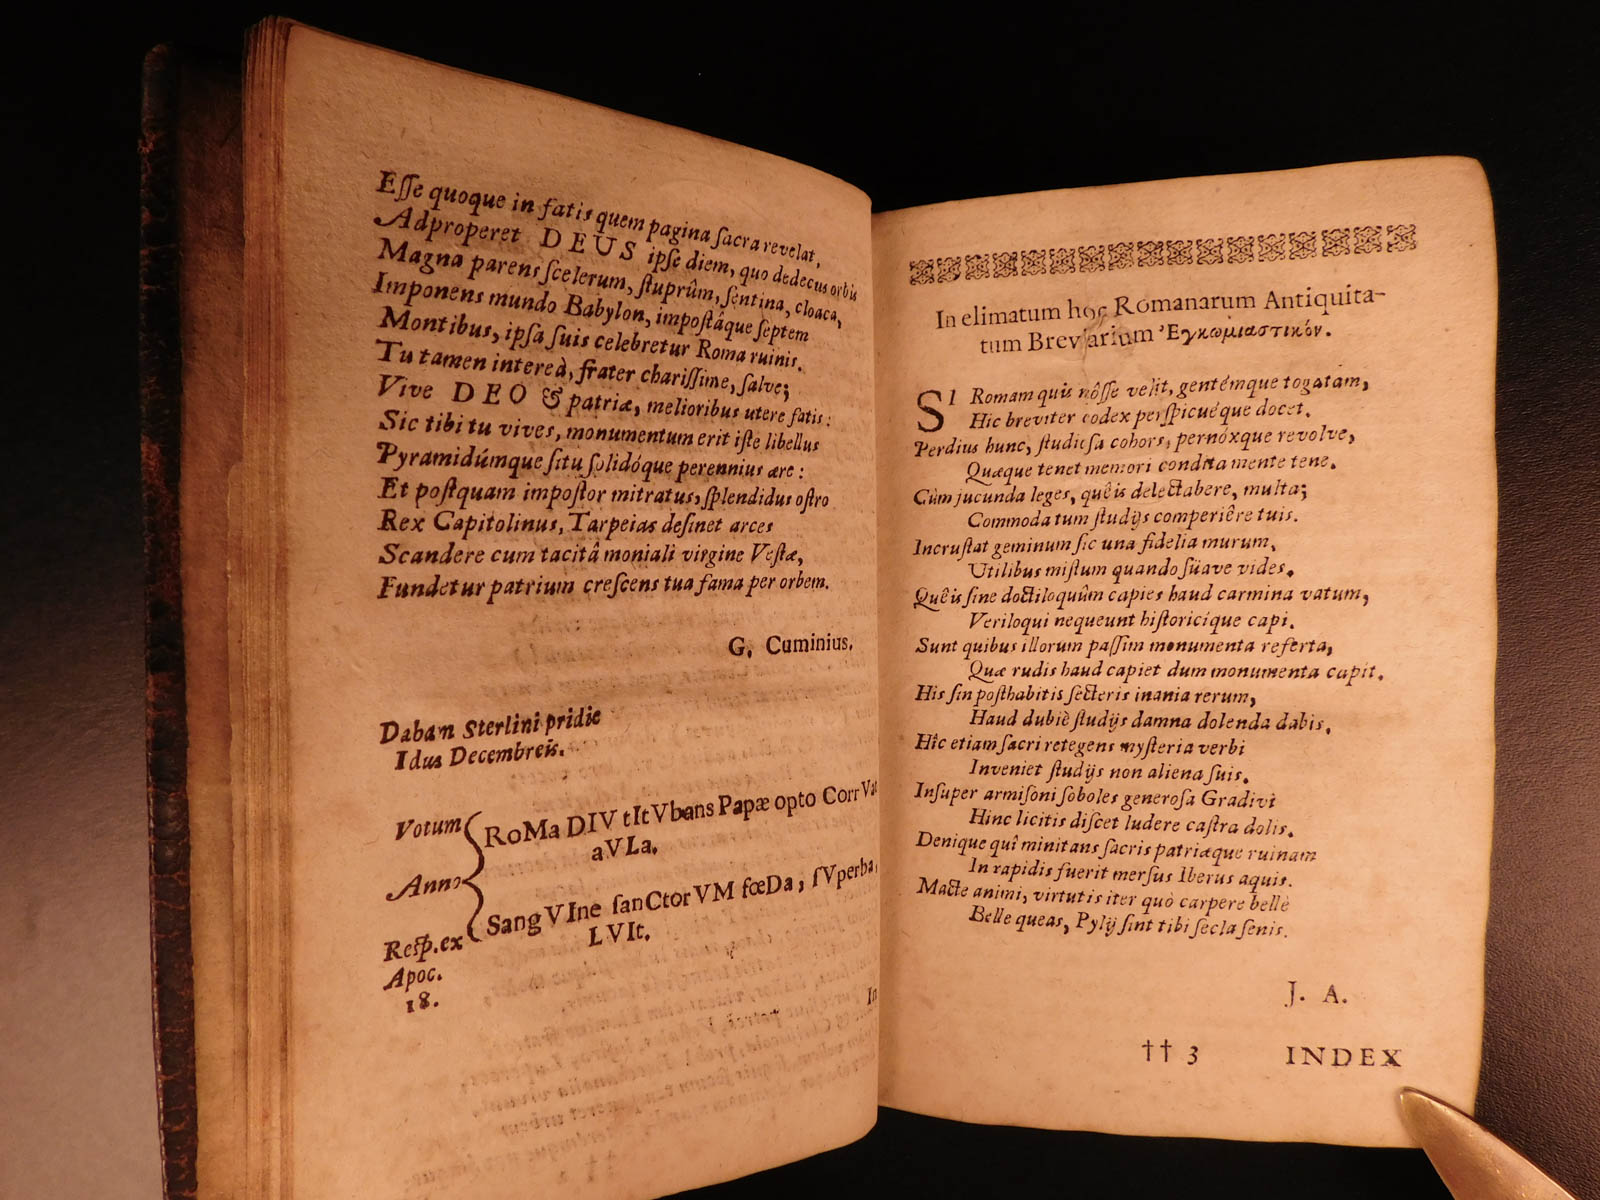 Eſſe quoque in fatis quem pagina ſacra revelat,
Adproperet DEUS ipſe diem, quo dedecus orbis
Magna parens ſcelerum, ſtuprûm, ſentina, cloaca,
Imponens mundo Babylon, impoſtâque ſeptem
Montibus, ipſa ſuis celebretur Roma ruinis.
Tu tamen intereà, frater chariſſime, ſalve;
Vive DEO & patriæ, melioribus utere fatis:
Sic tibi tu vives, monumentum erit iſte libellus
Pyramidúmque ſitu ſolidóque perennius ære:
Et poſtquam impoſtor mitratus, ſplendidus oſtro
Rex Capitolinus, Tarpeias deſinet arces
Scandere cum tacitâ moniali virgine Veſtæ,
Fundetur patrium creſcens tua fama per orbem.
G. Cuminius.
Dabam Sterlini pridie
Idus Decembreis.
Votum
RoMa DIV tItVbans Papæ opto CorrVat
aVLa.
Anno
SangVIne ſanCtorVM fœDa, ſVperba,
LVIt.
Reſp. ex
Apoc.
18.
In
In elimatum hoc Romanarum Antiquita-
tum Breviarium Ἐγκωμιαστικόν.
SI Romam quis nôſſe velit, gentémque togatam,
Hic breviter codex perſpicuéque docet.
Perdius hunc, ſtudioſa cohors, pernóxque revolve,
Quæque tenet memori condita mente tene.
Cùm jucunda leges, quêis delectabere, multa;
Commoda tum ſtudijs comperiêre tuis.
Incruſtat geminum ſic una fidelia murum,
Utilibus miſtum quando ſüave vides.
Quêis ſine doctiloquûm capies haud carmina vatum,
Veriloqui nequeunt hiſtoricíque capi.
Sunt quibus illorum paſſim monumenta referta,
Quæ rudis haud capiet dum monumenta capit.
His ſin poſthabitis ſecteris inania rerum,
Haud dubiè ſtudijs damna dolenda dabis.
Hîc etiam ſacri retegens myſteria verbi
Inveniet ſtudijs non aliena ſuis.
Inſuper armiſoni ſoboles generoſa Gradivi
Hinc licitis diſcet ludere caſtra dolis.
Denique quî minitans ſacris patriæque ruinam
In rapidis fuerit merſus Iberus aquis.
Macte animi, virtutis iter quò carpere bellè
Belle queas, Pylij ſint tibi ſecla ſenis.
J. A.
†† 3 INDEX